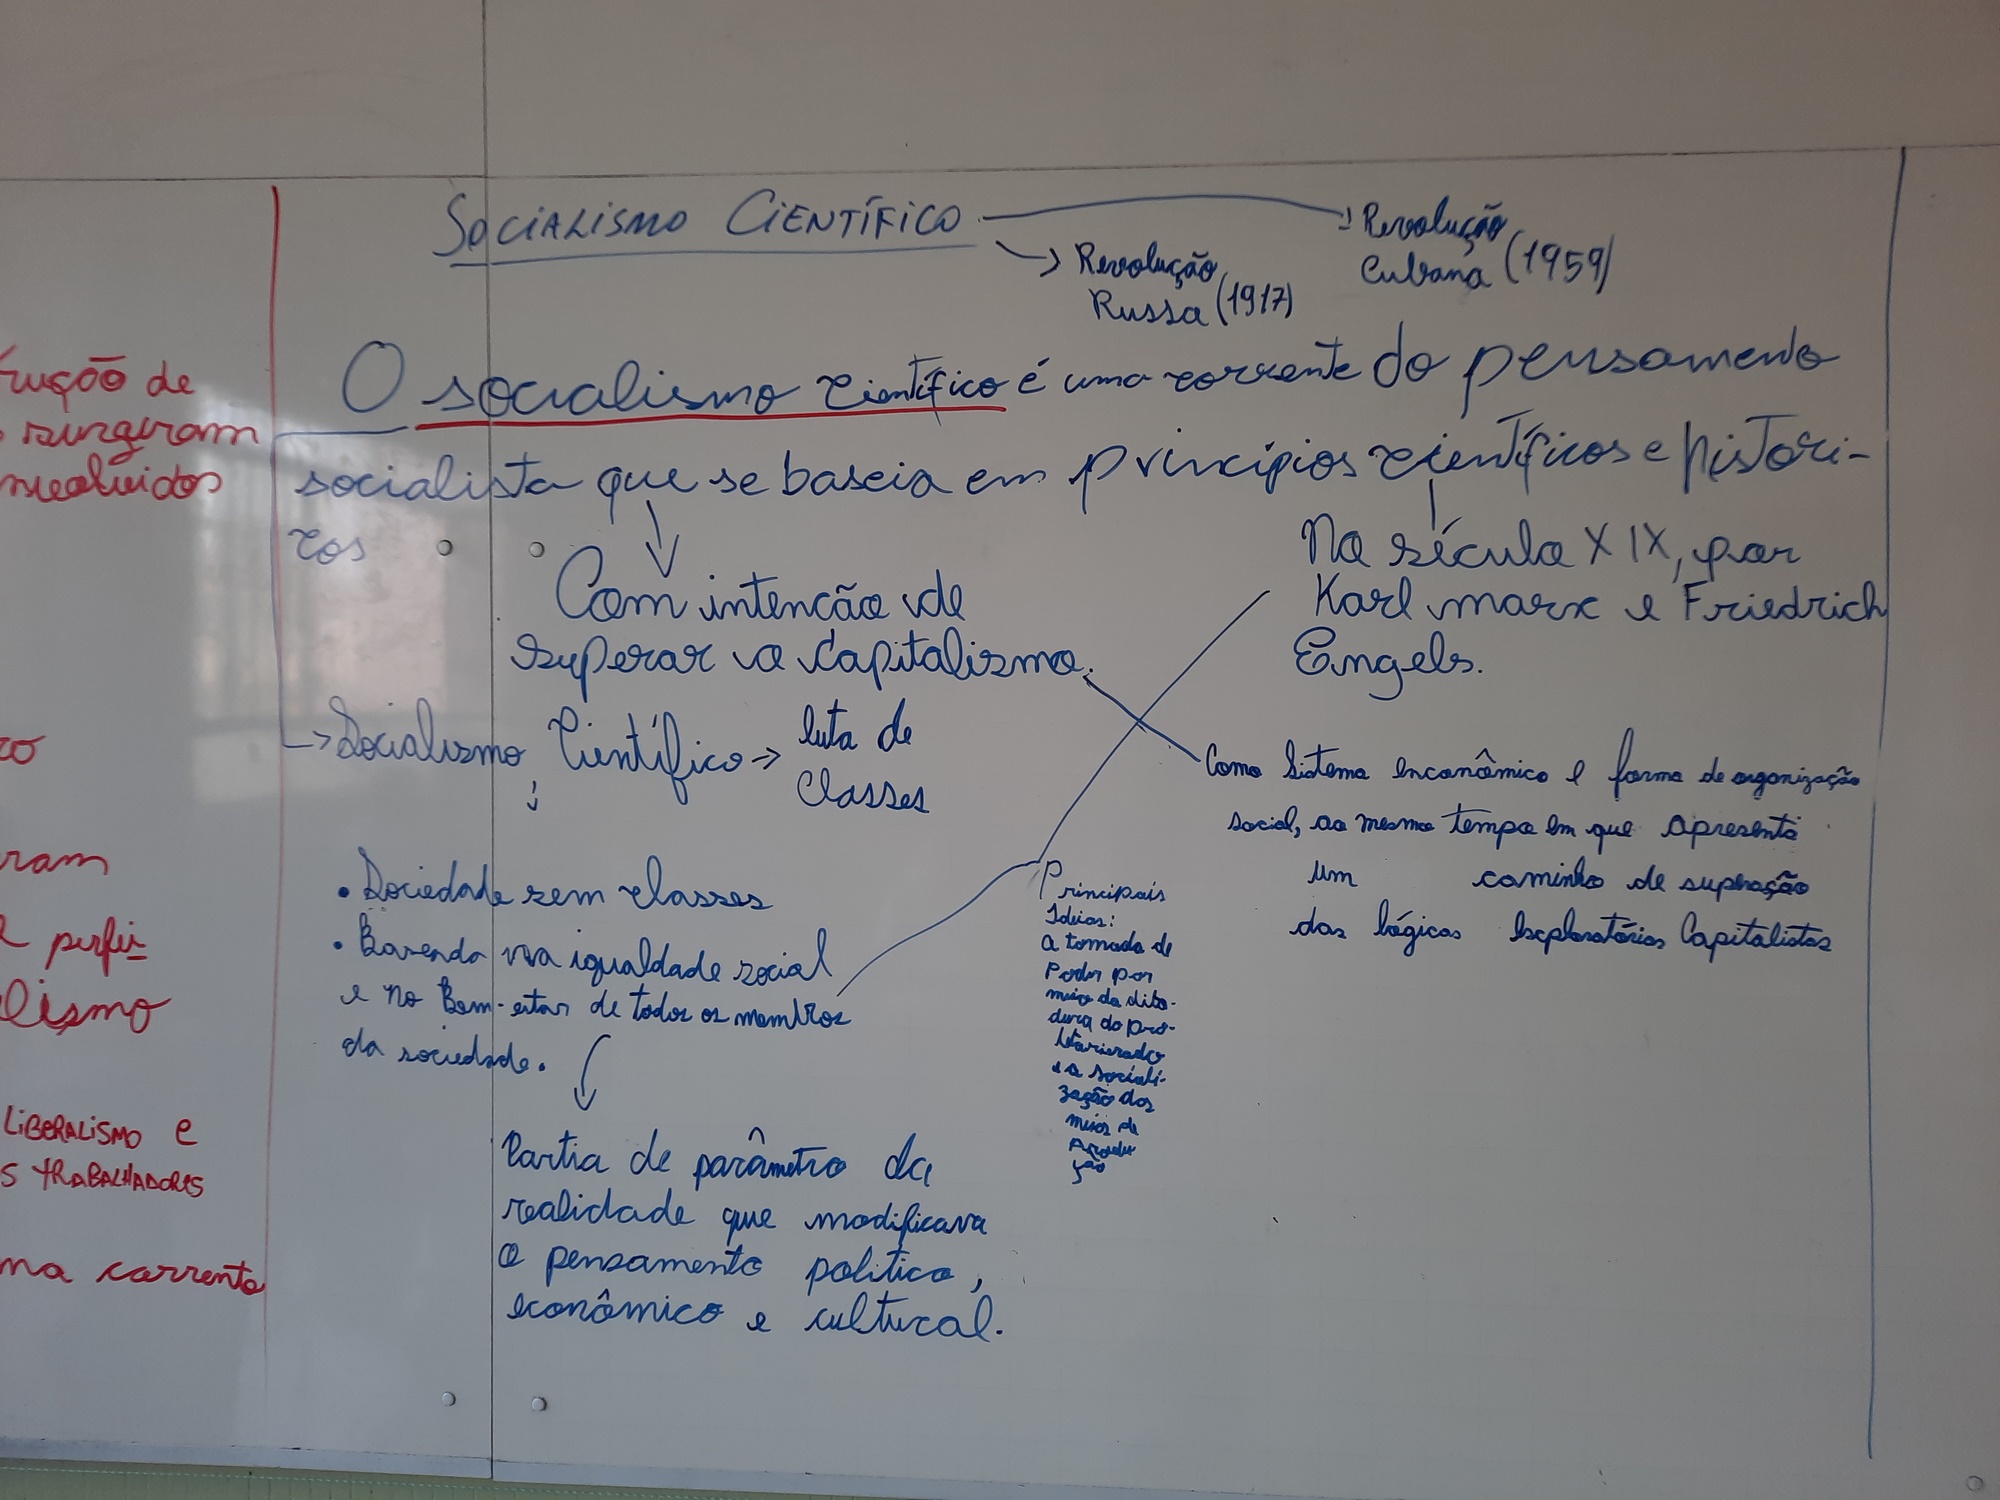 rução de
surgiram
nvolvidos
co
ram
e perfei
lismo
LIBERALISMO e
s TRABALHADORES
ma corrente
SOCIALISMO CIENTÍFICO
Revolução
Cubana (1959)
Revolução
Russa (1917)
O socialismo científico é uma corrente do pensamento
socialista que se baseia em princípios científicos e históri-
cos
Com intencão de
superar o capitalismo.
No século XIX, por
Karl marx e Friedrich
Engels.
Socialismo Científico → luta de
Classes
Como Sistema enconômico e forma de organização
social, ao mesmo tempo em que apresenta
um caminho de supração
das lógicas exploratórias Capitalistas
• Sociedade sem classes
• Baseado na igualdade social
e no Bem-estar de todos os membros
da sociedade.
Principais
Ideias:
a tomada de
Poder por
meio da dita-
dura do pro-
letariado
e a sociali-
zação dos
meios de
Produ
ção
Partia de parâmetro da
realidade que modificava
o pensamento político,
econômico e cultural.